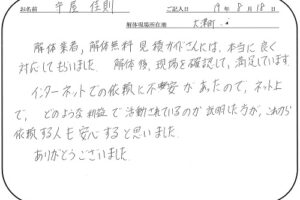 お名前 守屋 佳則 ご記入日 19年8月18日
解体現場所在地 大津町
解体業者，解体無料見積ガイドさんには、本当に良く
対応してもらいました 解体後、現場を確認して，満足しています
インターネットでの依頼に不安があたので，ネット上
で，どのような利益で活動されているのか説明した方が，これから
依頼する人も安心すると思いました．
ありがとうございました．